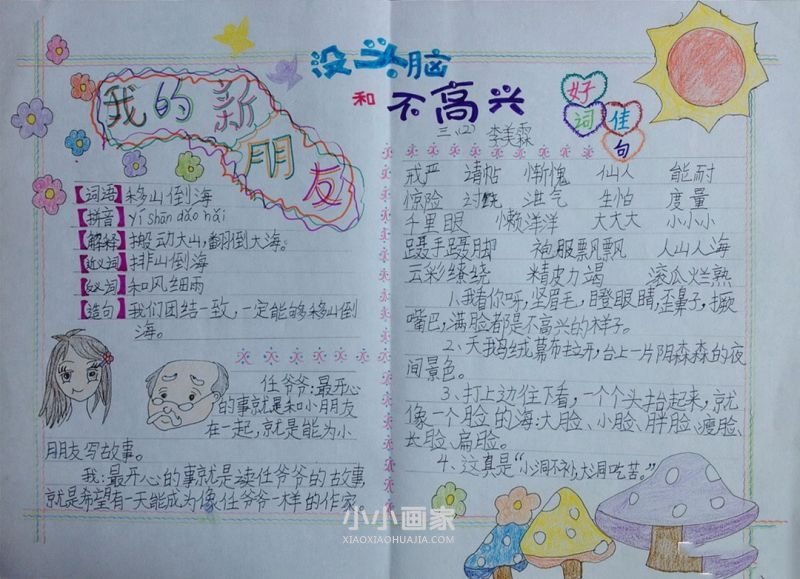 没头脑
和 不高兴
三.(2) 李美霖
我的新朋友
【词语】移山倒海
【拼音】yí shān dǎo hǎi
【解释】搬动大山,翻倒大海。
【近义词】排山倒海
【反义词】和风细雨
【造句】我们团结一致,一定能够移山倒
海。
任爷爷:最开心
的事就是和小朋友
在一起,就是能为小
朋友写故事。
我:最开心的事就是读任爷爷的故事,
就是希望有一天能成为像任爷爷一样的作家
好词佳句
戒严 请帖 惭愧 仙人 能耐
惊险 讨饶 淇气 生怕 度量
千里眼 懒洋洋 大大大 小小小
蹑手蹑脚 袍服飘飘 人山人海
云彩缭绕 精皮力竭 滚瓜烂熟
1、我看你呀,竖眉毛,瞪眼睛,歪鼻子,撅
嘴巴,满脸都是不高兴的样子。
2、天鹅绒幕布拉开,台上一片阴森森的夜
间景色。
3、打上边往下看,一个个头抬起来,就
像一个脸的海:大脸、小脸、胖脸、瘦脸、
长脸、扁脸。
4、这真是“小洞不补,大洞吃苦。”
小小画家
XIAOXIAOHUAJIA.COM